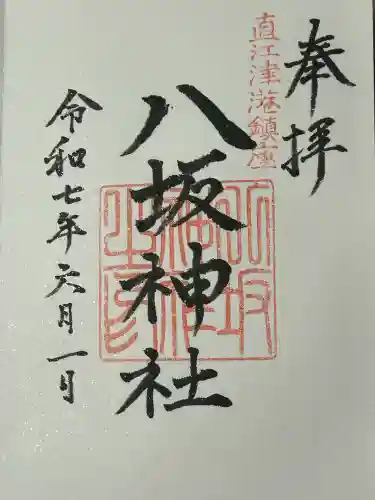 奉拝
直江津港鎮座
八坂神社
令和七年六月一日